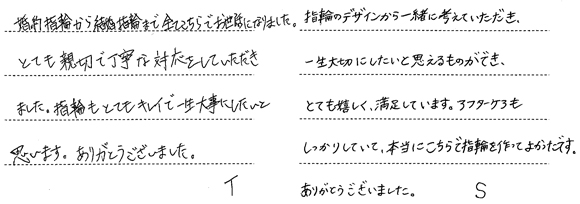 婚約指輪から結婚指輪まで全てこちらでお世話になりました。
とても親切で丁寧な対応をしていただき
ました。指輪もとてもキレイで一生大事にしたいと
思います。ありがとうございました。
T
指輪のデザインから一緒に考えていただき、
一生大切にしたいと思えるものができ、
とても嬉しく、満足しています。アフターケアも
しっかりしていて、本当にこちらで指輪を作ってよかったです。
ありがとうございました。
S